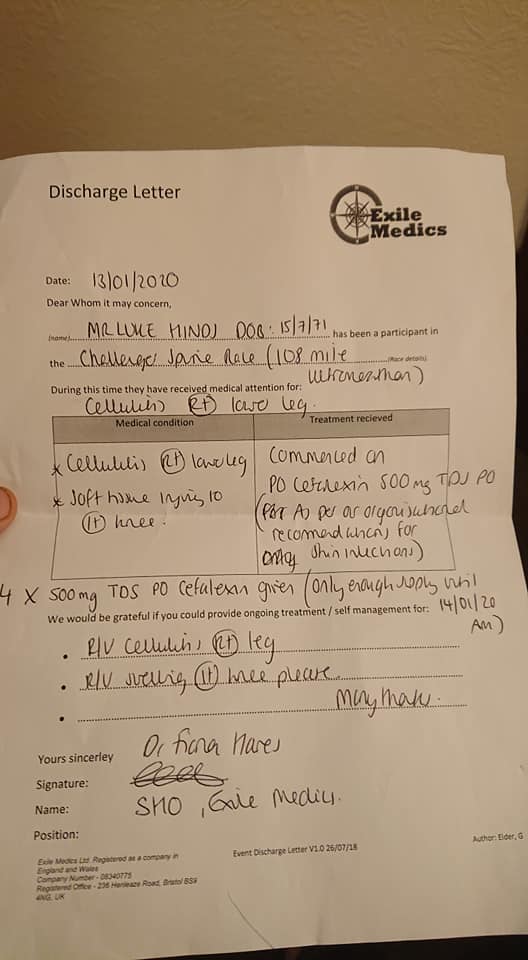 Discharge Letter
Exile
Medics
Date: 13/01/2020
Dear Whom it may concern,
(name) MR LUKE HINDS DOB: 15/7/71 has been a participant in
the Challenger Spine Race (108 mile (Race details)
ultramarathon)
During this time they have received medical attention for:
Cellulitis Rt lower leg.
Medical condition Treatment recieved
* Cellulitis Rt lower leg
* Soft tissue injury to
lt knee.
Commenced on
PO Cefalexin 500mg TDS PO
as per organisational
recommendations for
skin infections)
4 x 500mg TDS PO Cefalexin given (only enough supply until
14/01/20
AM)
We would be grateful if you could provide ongoing treatment / self management for:
• R/V Cellulitis Rt leg
• R/V swelling lt knee please.
• Many thanks.
Yours sincerley Dr Fiona Hares
Signature:
Name: SHO, Exile Medics.
Position:
Exile Medics Ltd. Registered as a company in
England and Wales
Company Number - 08340775
Registered Office - 236 Henleaze Road, Bristol BS9
4NG, UK
Event Discharge Letter V1.0 26/07/18
Author: Elder, G